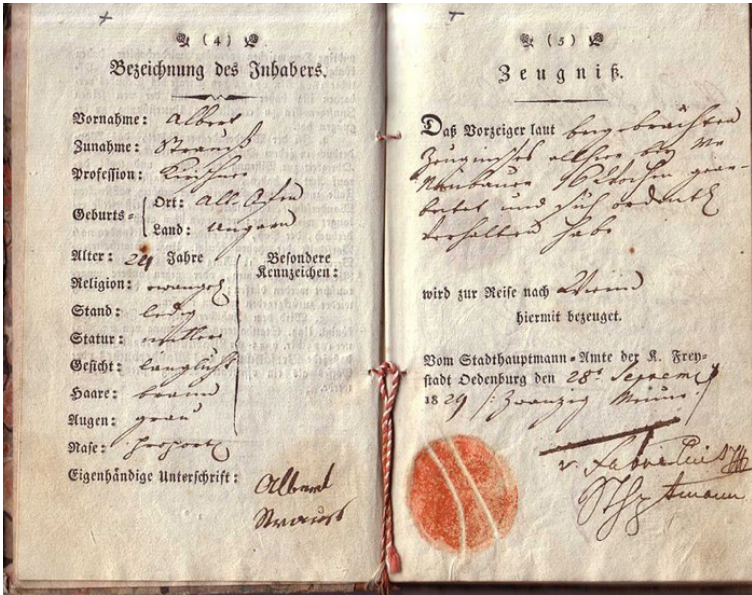 (4)
Bezeichnung des Inhabers.
Vornahme: Albert
Zunahme: Strauß
Profession: Kirschner
Geburts= Ort: Alt Ofen
Land: Ungarn
Alter: 24 Jahre
Besondere Kennzeichen:
Religion: evangel
Stand: ledig
Statur: mittlere
Gesicht: länglicht
Haare: braun
Augen: grau
Nase: proport
Eigenhändige Unterschrift:
Albert
Strauß
(5)
Zeugniß.
Daß Vorzeiger laut beygebrachten
Zeugnisses allhier bey
Neubauer 16 Wochen gear-
beitet und sich ordentl
verhalten habe
wird zur Reise nach Wien
hiermit bezeuget.
Vom Stadthauptmann=Amte der K. Frey=
stadt Oedenburg den 28t Septem
1829 /: Zwanzig Neun :/
v.
Sthptmann